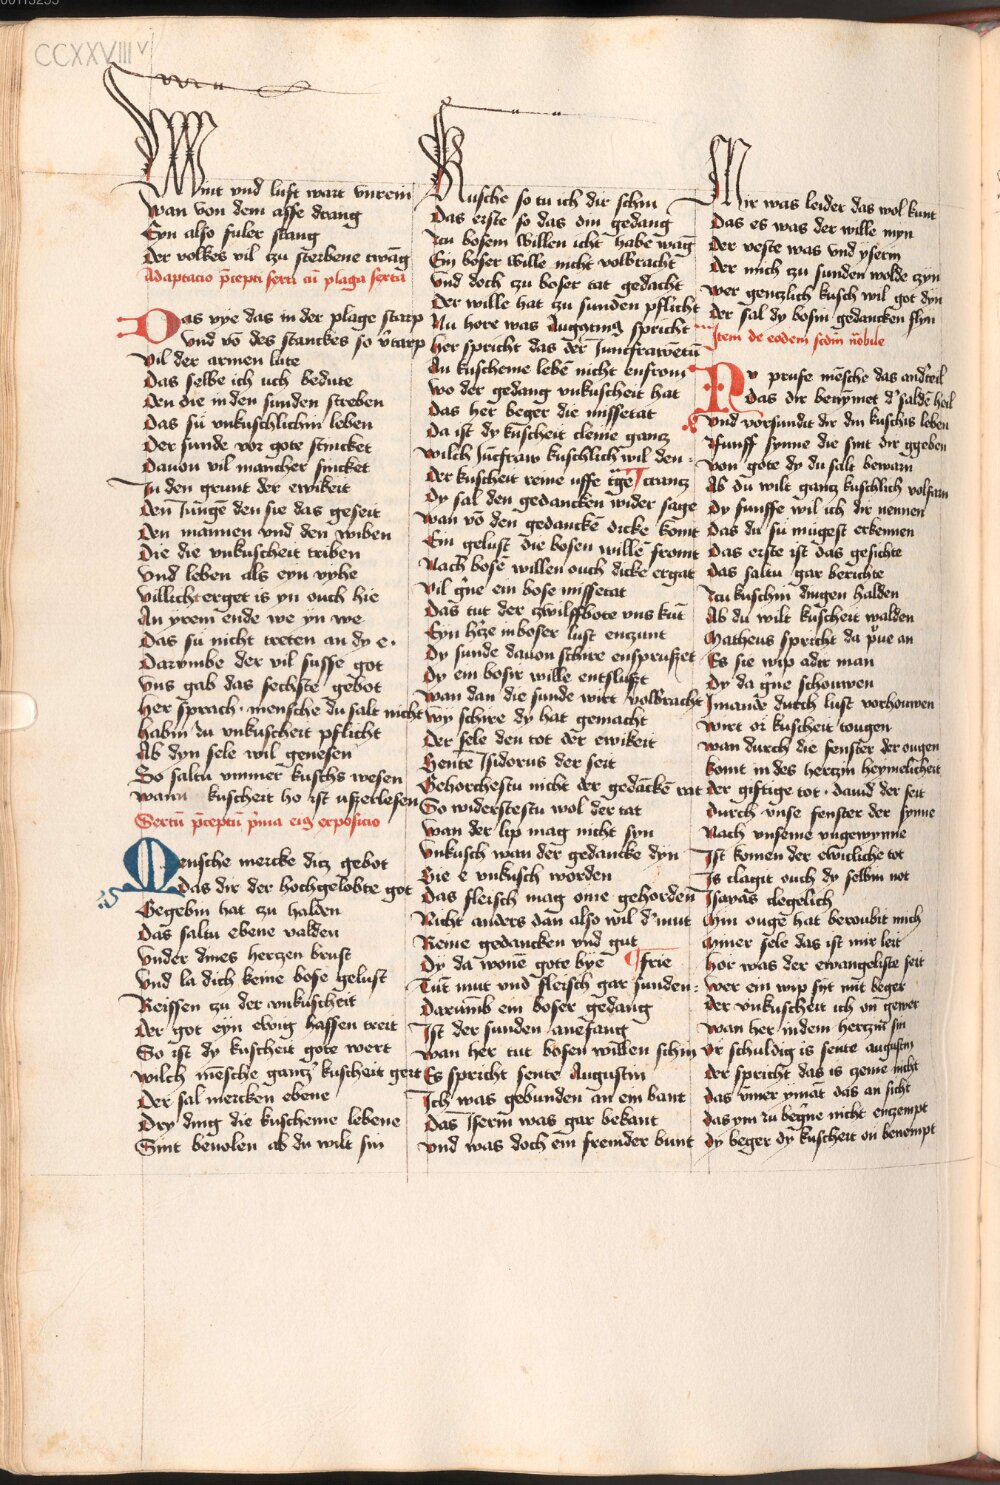 CCXXVIIIv
Wint vnd luft wart vnrein
Wan von dem asse drang
Eyn also fuler stang
Der volkes vil czu sterbene twāg
Adaptacio p̄cepti sexti cū plaga sexta
Das vye das in der plage starp
Vnd vō des stanckes so v̓tarp
Vil der armen lute
Das selbe ich uch bedute
Den die in den sunden streben
Das sū vnkuschlichin leben
Der sunde vor gote stincket
Dauon vil mancher sincket
In den grunt der ewikeit
Den Junge den sie das geseit
Den mannen vnd den wiben
Die die vnkuscheit triben
Vnd leben als eyn vyhe
Villicht erget is yn ouch hie
An yrem ende we yn we
Das sū nicht treten an dy e.
Darvmbe der vil susse got
Vns gab das sechste gebot
Her sprach. mensche du salt nicht
Habin zu vnkuscheit pflicht
Ab dyn sele wil genesen
So saltu vmmer kuschs wesen
Wann kuscheit ho ist vszerlesen
Sextū p̄ceptū p̄ma eiꝯ exposicio
Mensche mercke dicz gebot
Das dir der hochgelobte got
Gegebin hat zu halden
Das saltu ebene valden
Vnder dines herzen brust
Vnd la dich keine bose gelust
Reissen zu der vnkuscheit
Der got eyn ewig hassen treit
So ist dy kuscheit gote wert
Wilch mēsche gantz kuscheit gert
Der sal mercken ebene
Dry ding die kuscheme lebene
Sint beuolen ab du wilt sin
Kusche so tu ich dir schin
Das erste so das din gedang
Zcu bosem willen icht habe wāg
Ein boser wille nicht volbracht
Vnd doch zu boser tat gedacht
Der wille hat zu sunden pflicht
Nu hore was Augꝰtinꝯ spricht
Her spricht das der Juncfrawetū
An kuscheme lebē nicht enfrom
Wo der gedang vnkuscheit hat
Das her beger die missetat
Da ist dy kuscheit cleine gantz
Wilch Jūcfraw kuschlich wil den
Der kuscheit reine uffe tgē crantz
Dy sal den gedancken wider sage
Wan vō den gedanckē dicke komt
Ein gelust die bosen willē fromt
Nach bosē willen ouch dicke ergat
Vil gn̄e ein bose missetat
Das tut der czwilffbote vns kūt
Eyn h̓tze in boser lust enzunt
Dy sunde dauon schire enspruszet
Dy ein bosir wille entsluszt
Wan dan die sunde wirt volbracht
Wy schire dy hat gemacht
Der sele den tot der ewikeit
Sente Isidorus der seit
Gehorchestu nicht der gedāckē rat
So widerstestu wol der tat
Wan der lip mag nicht syn
Vnkusch wan der gedancke dyn
Sie e vnkusch worden
Das fleisch mag one gehorden
Nicht anders dan also wil d̓ mut
Reine gedancken vnd gut
Dy da wonē gote bye frie
Tut mut vnd fleisch gar sunden
Darūmb ein boser gedang
Ist der sunden anefang
Wan her tut bosen willen schin
Es spricht sente Augustin
Ich was gebunden an ein bant
Das Iserin was gar bekant
Vnd was doch ein fremder bunt
Mir was leider das wol kunt
Das es was der wille myn
Der veste was vnd yserin
Der mich czu sunden wolde czyn
Wer gentzlich kusch wil got dyn
Der sal dy bosin gedancken flyn
Item de eodem scdm̄ nōbile
Nv prufe mēsche das and̓teil
Das dir benȳmet d̓ saldē heil
Vnd vorsundit dir din kuschis leben
Funff synne die sint dir ggeben
Von gote dy du salt bewarn
Ab du wilt gantz kuschlich volfarn
Dy funffe wil ich dir nennen
Das du sū mugest erkennen
Das erste ist das gesichte
Das saltu gar berichte
Zcu kuschin dingen halden
Ab du wilt kuscheit walden
Matheus spricht da pͮue an
Es sie wip adir man
Dy da gn̄e schouwen
Imande durch lust vorhouwen
Wirt or kuscheit tougen
Wan durch die fenster der ougen
Komt in des hertzin heymelicheit
Der giftige tot. dauid der seit
Durch vnse fenster der synne
Nach vnseme vngewynne
Ist komen der ewicliche tot
Is clagit ouch dy selbin not
Isayas clegelich
Min ougē hat beroubit mich
Miner sele das ist mir leit
Hor was der ewangeliste seit
Wer ein wip syt mit beger
Der vnkuscheit ich on gewer
Wan her in dem hertzin sin
Or schuldig is sente augustin
Der spricht das is zeme nicht
Das vmer ymāt das an sicht
Das ym zu beḡne nicht enzempt
Dy beger dy kuscheit on benempt